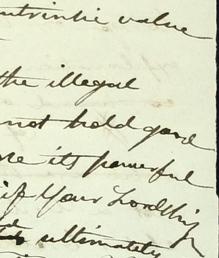 intrinsic value
the illegal
not hold good
its powerful
if Your Lordship
ultimately